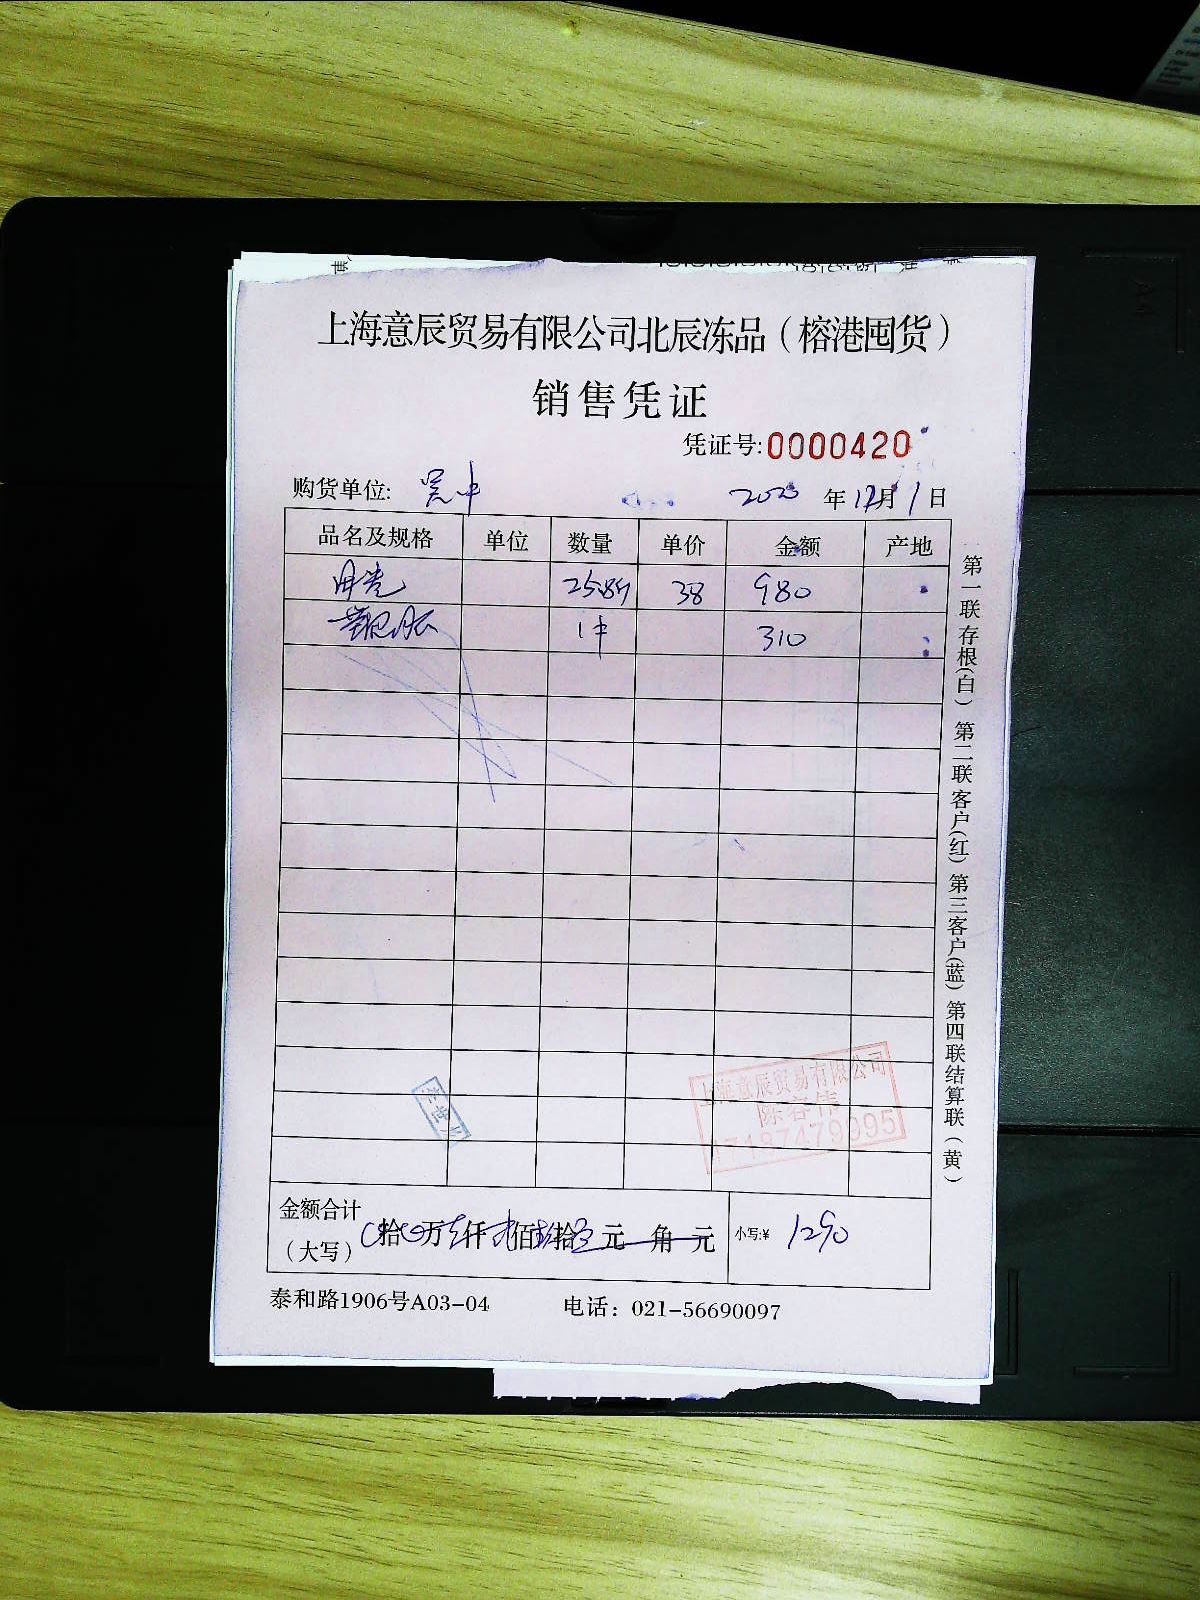 上海意辰贸易有限公司北辰冻品（榕港囤货）
销售凭证
凭证号:0000420
购货单位: 吴中 2020 年 12月 1 日
品名及规格 单位 数量 单价 金额 产地
38 980
1件 310
第一联存根(白) 第二联客户(红) 第三客户(蓝) 第四联结算联(黄)
上海意辰贸易有限公司
陈容伟
17187479095
金额合计
（大写） 拾 万 仟 佰 拾 元 角 元 小写:¥ 1290
泰和路1906号A03-04 电话：021-56690097